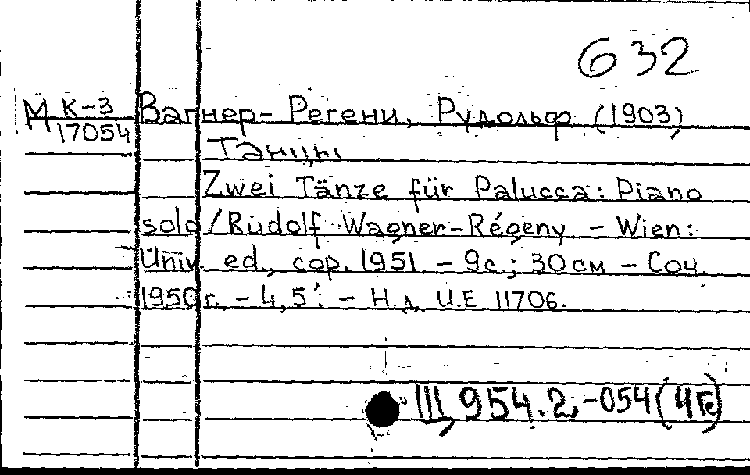 632
М К-3 Вагнер-Регени, Рудольф (1903)
17054
Танцы
Zwei Tänze für Palucca: Piano
solo/Rudolf Wagner-Régeny – Wien:
Univ. ed., cop. 1951. – 9с.; 30см – Соч.
1950г. – 4,5'. – Н.д. U.E 11706.
III, 954.2,-054(4Г)